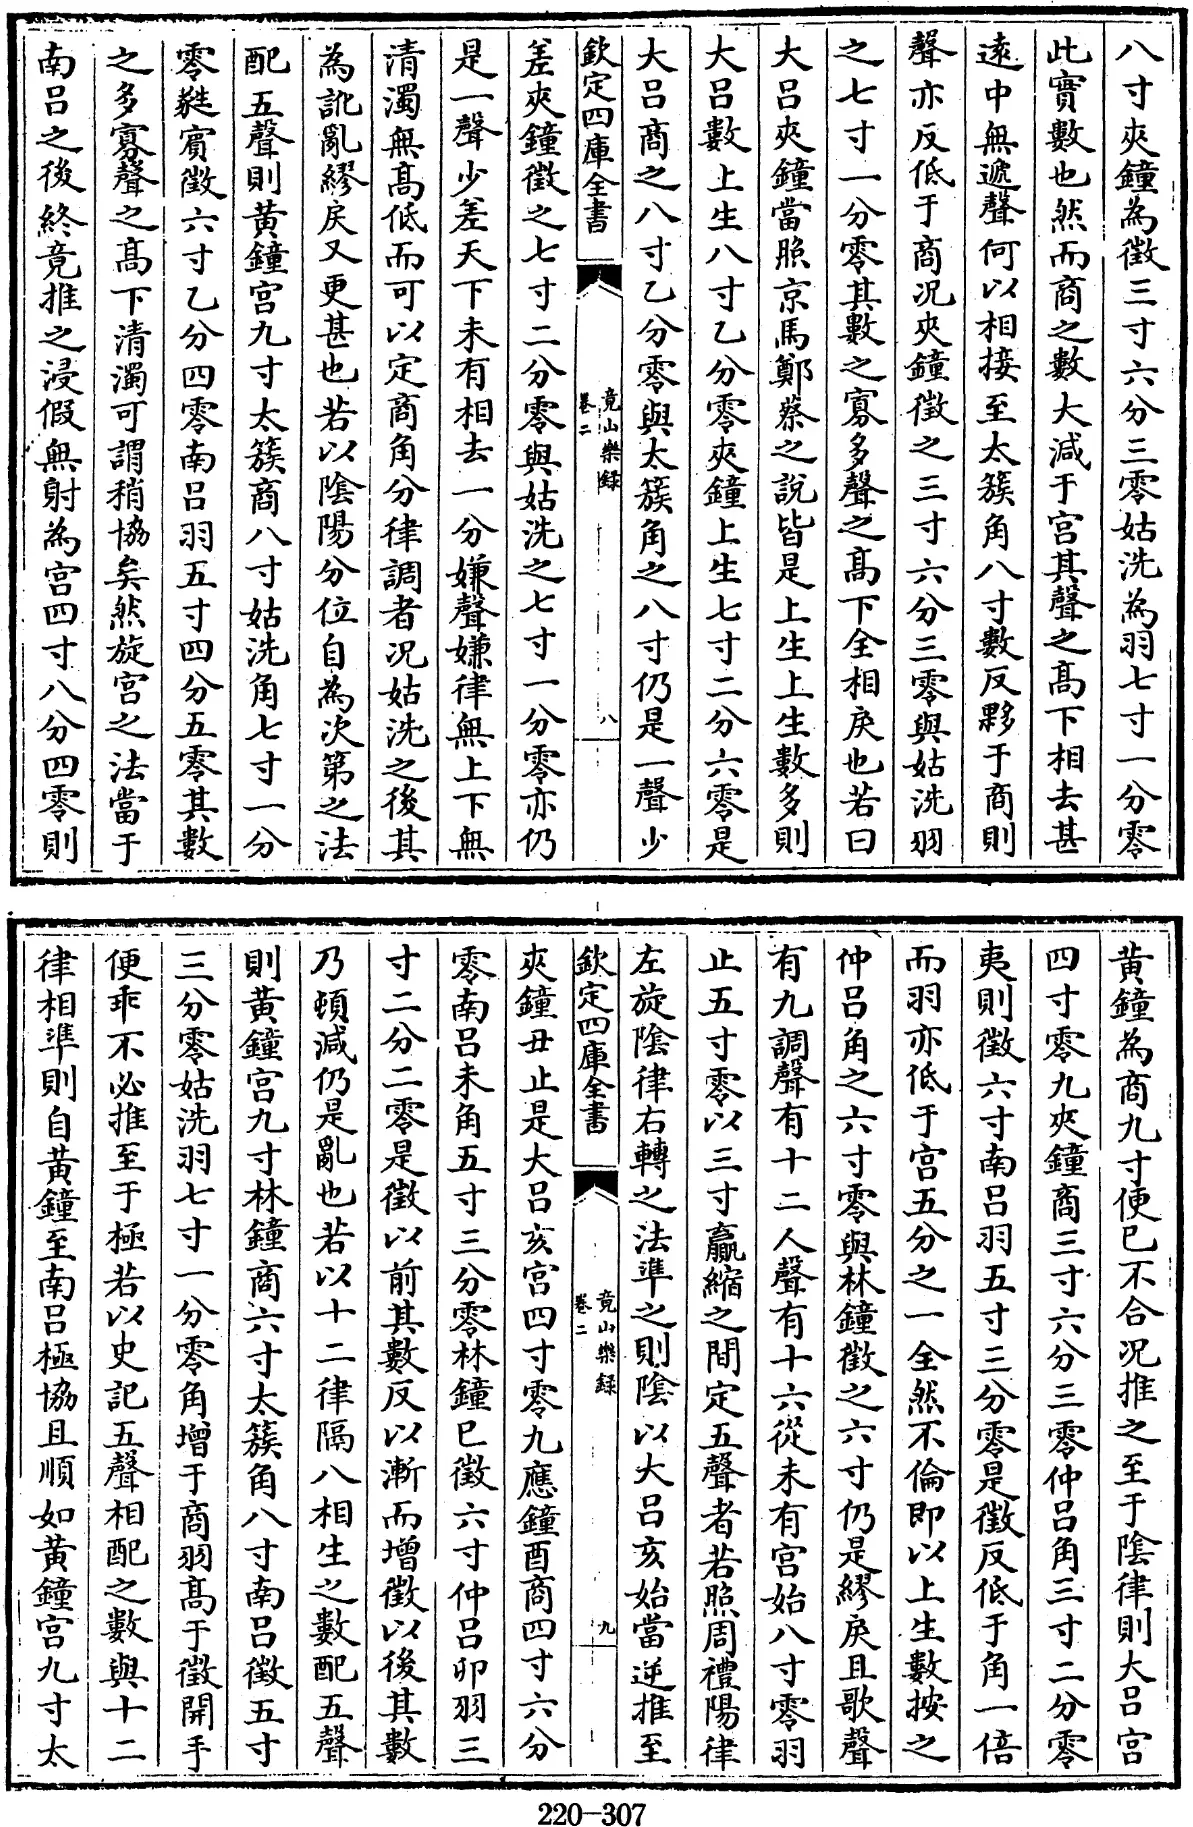 八寸夾鐘為徵三寸六分三零姑洗為羽七寸一分零
此實數也然而商之數大減于宮其聲之髙下相去甚
遠中無遞聲何以相接至太簇角八寸數反夥于商則
聲亦反低于商况夾鐘徵之三寸六分三零與姑洗羽
之七寸一分零其數之寡多聲之髙下全相戾也若曰
大吕夾鐘當照京馬鄭蔡之說皆是上生上生數多則
大吕數上生八寸乙分零夾鐘上生七寸二分六零是
大吕商之八寸乙分零與太簇角之八寸仍是一聲少
欽定四庫全書
竟山樂録
卷二
八
差夾鐘徵之七寸二分零與姑洗之七寸一分零亦仍
是一聲少差天下未有相去一分嫌聲嫌律無上下無
清濁無髙低而可以定商角分律調者况姑洗之後其
為訛亂繆戾又更甚也若以陰陽分位自為次第之法
配五聲則黄鐘宮九寸太簇商八寸姑洗角七寸一分
零蕤賓徵六寸乙分四零南吕羽五寸四分五零其數
之多寡聲之髙下清濁可謂稍協矣然旋宮之法當于
南吕之後終竟推之浸假無射為宮四寸八分四零則
黄鐘為商九寸便已不合况推之至于陰律則大吕宮
四寸零九夾鐘商三寸六分三零仲吕角三寸二分零
夷則徵六寸南吕羽五寸三分零是徵反低于角一倍
而羽亦低于宮五分之一全然不倫即以上生數按之
仲吕角之六寸零與林鐘徵之六寸仍是繆戾且歌聲
有九調聲有十二人聲有十六從未有宮始八寸零羽
止五寸零以三寸贏縮之間定五聲者若照周禮陽律
左旋陰律右轉之法準之則陰以大吕亥始當逆推至
欽定四庫全書
竟山樂録
卷二
九
夾鐘丑止是大吕亥宮四寸零九應鐘酉商四寸六分
零南吕未角五寸三分零林鐘巳徵六寸仲吕卯羽三
寸二分二零是徵以前其數反以漸而增徵以後其數
乃頓減仍是亂也若以十二律隔八相生之數配五聲
則黄鐘宮九寸林鐘商六寸太簇角八寸南吕徵五寸
三分零姑洗羽七寸一分零角增于商羽髙于徵開手
便乖不必推至于極若以史記五聲相配之數與十二
律相準則自黄鐘至南吕極協且順如黄鐘宮九寸太
220-307